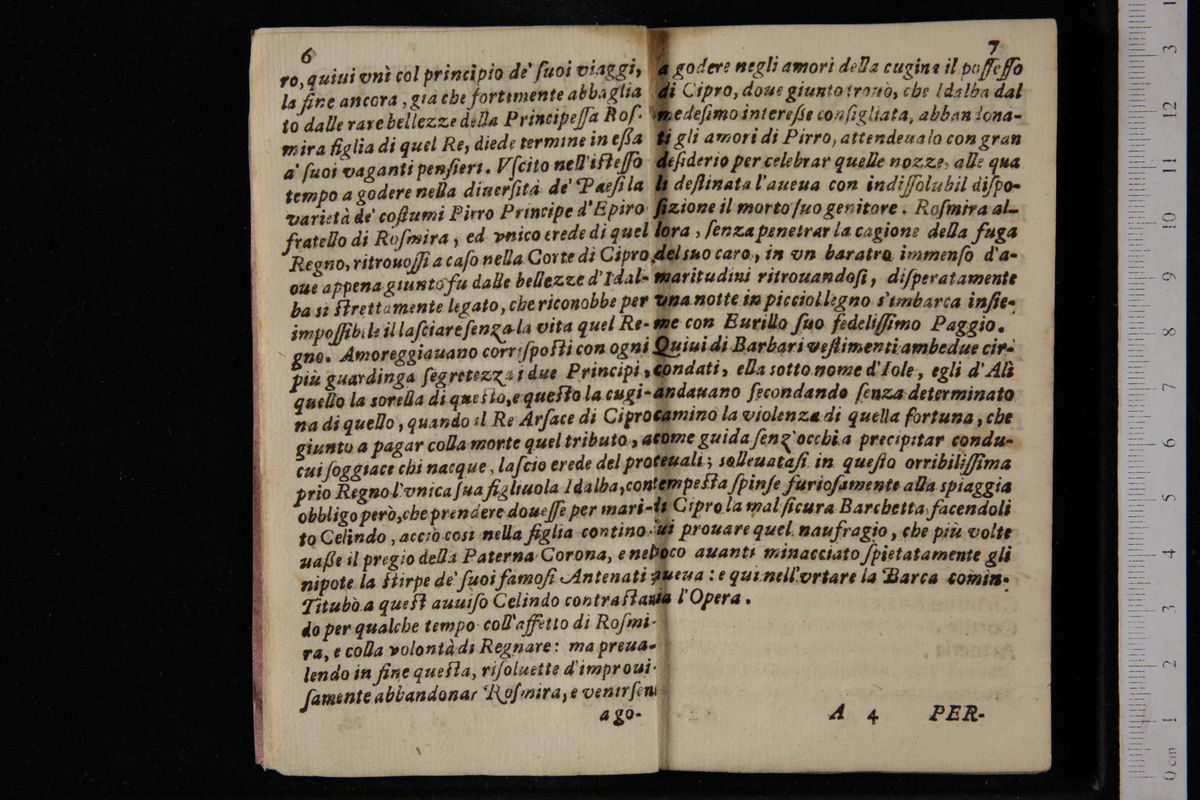 6
ro, quiui vnì col principio de' ſuoi viaggi,
la fine ancora, già che fortemente abbaglia
to dalle rare bellezze della Principeſſa Roſ-
mira figlia di quel Re, diede termine in eßa
a' ſuoi vaganti penſieri. Vſcito nell'iſteſſo
tempo a godere nella diuerſità de' Paeſi la
varietà de' coſtumi Pirro Principe d'Epiro
fratello di Roſmira, ed vnico erede di quel
Regno, ritrouoſſi a caſo nella Corte di Cipro,
oue appena giunto fu dalle bellezze d'Idal-
ba sì ſtrettamente legato, che riconobbe per
impoſſibile il laſciare ſenza la vita quel Re-
gno. Amoreggiauano corriſpoſti con ogni
più guardinga ſegretezza i due Principi,
quello la sorella di queſto, e queſto la cugi-
na di quello, quando il Re Arſace di Cipro
giunto a pagar colla morte quel tributo, a
cui ſoggiace chi nacque, laſciò erede del pro
prio Regno l'vnica ſua figliuola Idalba, con
obbligo però, che prendere doueſſe per mari-
to Celindo, acciò così nella figlia contino-
uaße il pregio della Paterna Corona, e nel
nipote la ſtirpe de' ſuoi famoſi Antenati
Titubò a queſt auuiſo Celindo contraſtan
do per qualche tempo coll'affetto di Roſmi-
ra, e colla volontà di Regnare: ma preua-
lendo in fine queſta, riſoluette d'improui-
ſamente abbandonar Roſmira, e venirſen
a go-
7
a godere negli amori della cugina il poſſeſſo
di Cipro, doue giunto trouò, che Idalba dal
medeſimo intereße conſigliata, abbandona-
ti gli amori di Pirro, attendeualo con gran
deſiderio per celebrar quelle nozze, alle qua
li deſtinata l'aueua con indiſſolubil diſpo-
ſizione il morto ſuo genitore. Roſmira al-
lora, ſenza penetrar la cagione della fuga
del suo caro, in vn baratro immenſo d'a-
maritudini ritrouandoſi, diſperatamente
vna notte in picciol legno s'imbarca inſie-
me con Eurillo ſuo fedeliſſimo Paggio.
Quiui di Barbari veſtimenti ambedue cir-
condati, ella sotto nome d'Iole, egli d'Alì
andauano ſecondando ſenza determinato
camino la violenza di quella fortuna, che
come guida ſenz'occhi a precipitar condu-
ceuali; solleuataſi in queſta orribiliſſima
tempeſta ſpinſe furioſamente alla spiaggia
di Cipro la mal ſicura Barchetta facendoli
iui prouare quel naufragio, che più volte
poco auanti minacciato ſpietatamente gli
aueua: e qui nell'vrtare la Barca comin-
cia l'Opera.
A 4 PER-
0 cm 1 2 3 4 5 6 7 8 9 10 11 12